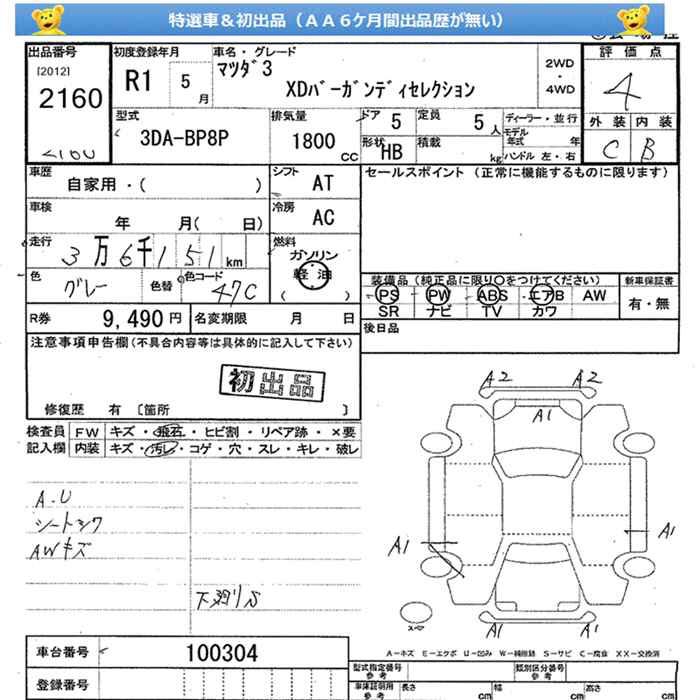 特選車＆初出品（ＡＡ６ケ月間出品歴が無い）
出品番号 初度登録年月 車名・グレード 評価点
[2012] R1 5月 マツダ3 2WD・4WD 4
2160 XDバーガンディセレクション
外装 内装
C B
型式 排気量 ドア 定員 ディーラー・並行
3DA-BP8P 1800cc 5 5人 モデル年式 年
形状 HB 積載 kg ハンドル 左・右
車歴 自家用・（ ） シフト AT セールスポイント（正常に機能するものに限ります）
車検 年 月（ 日） 冷房 AC
走行 3万6千151km 燃料 ガソリン 軽油 （ ）
色 グレー 色替 色コード 47C
装備品（純正品に限り○をつけてください） 新車保証書
PS PW ABS エアB AW 有・無
SR ナビ TV カワ
R券 9,490円 名変期限 月 日 後日品
注意事項申告欄（不具合内容等は具体的に記入して下さい）
初出品
修復歴 有 〔箇所 〕
検査員 FW キズ・飛石・ヒビ割・リペア跡・×要
記入欄 内装 キズ・汚レ・コゲ・穴・スレ・キレ・破レ
A.U
シートシワ
AWキズ
下廻りS
A2 A2
A1
A1 A1
A1 A1
スペア
A－キズ E－エクボ U－凹み W－補修跡 S－サビ C－腐食 XX－交換済
車台番号 100304
型式指定番号 参考 類別区分番号 参考
登録番号
車庫証明用 参考 長さ cm 幅 cm 高さ cm